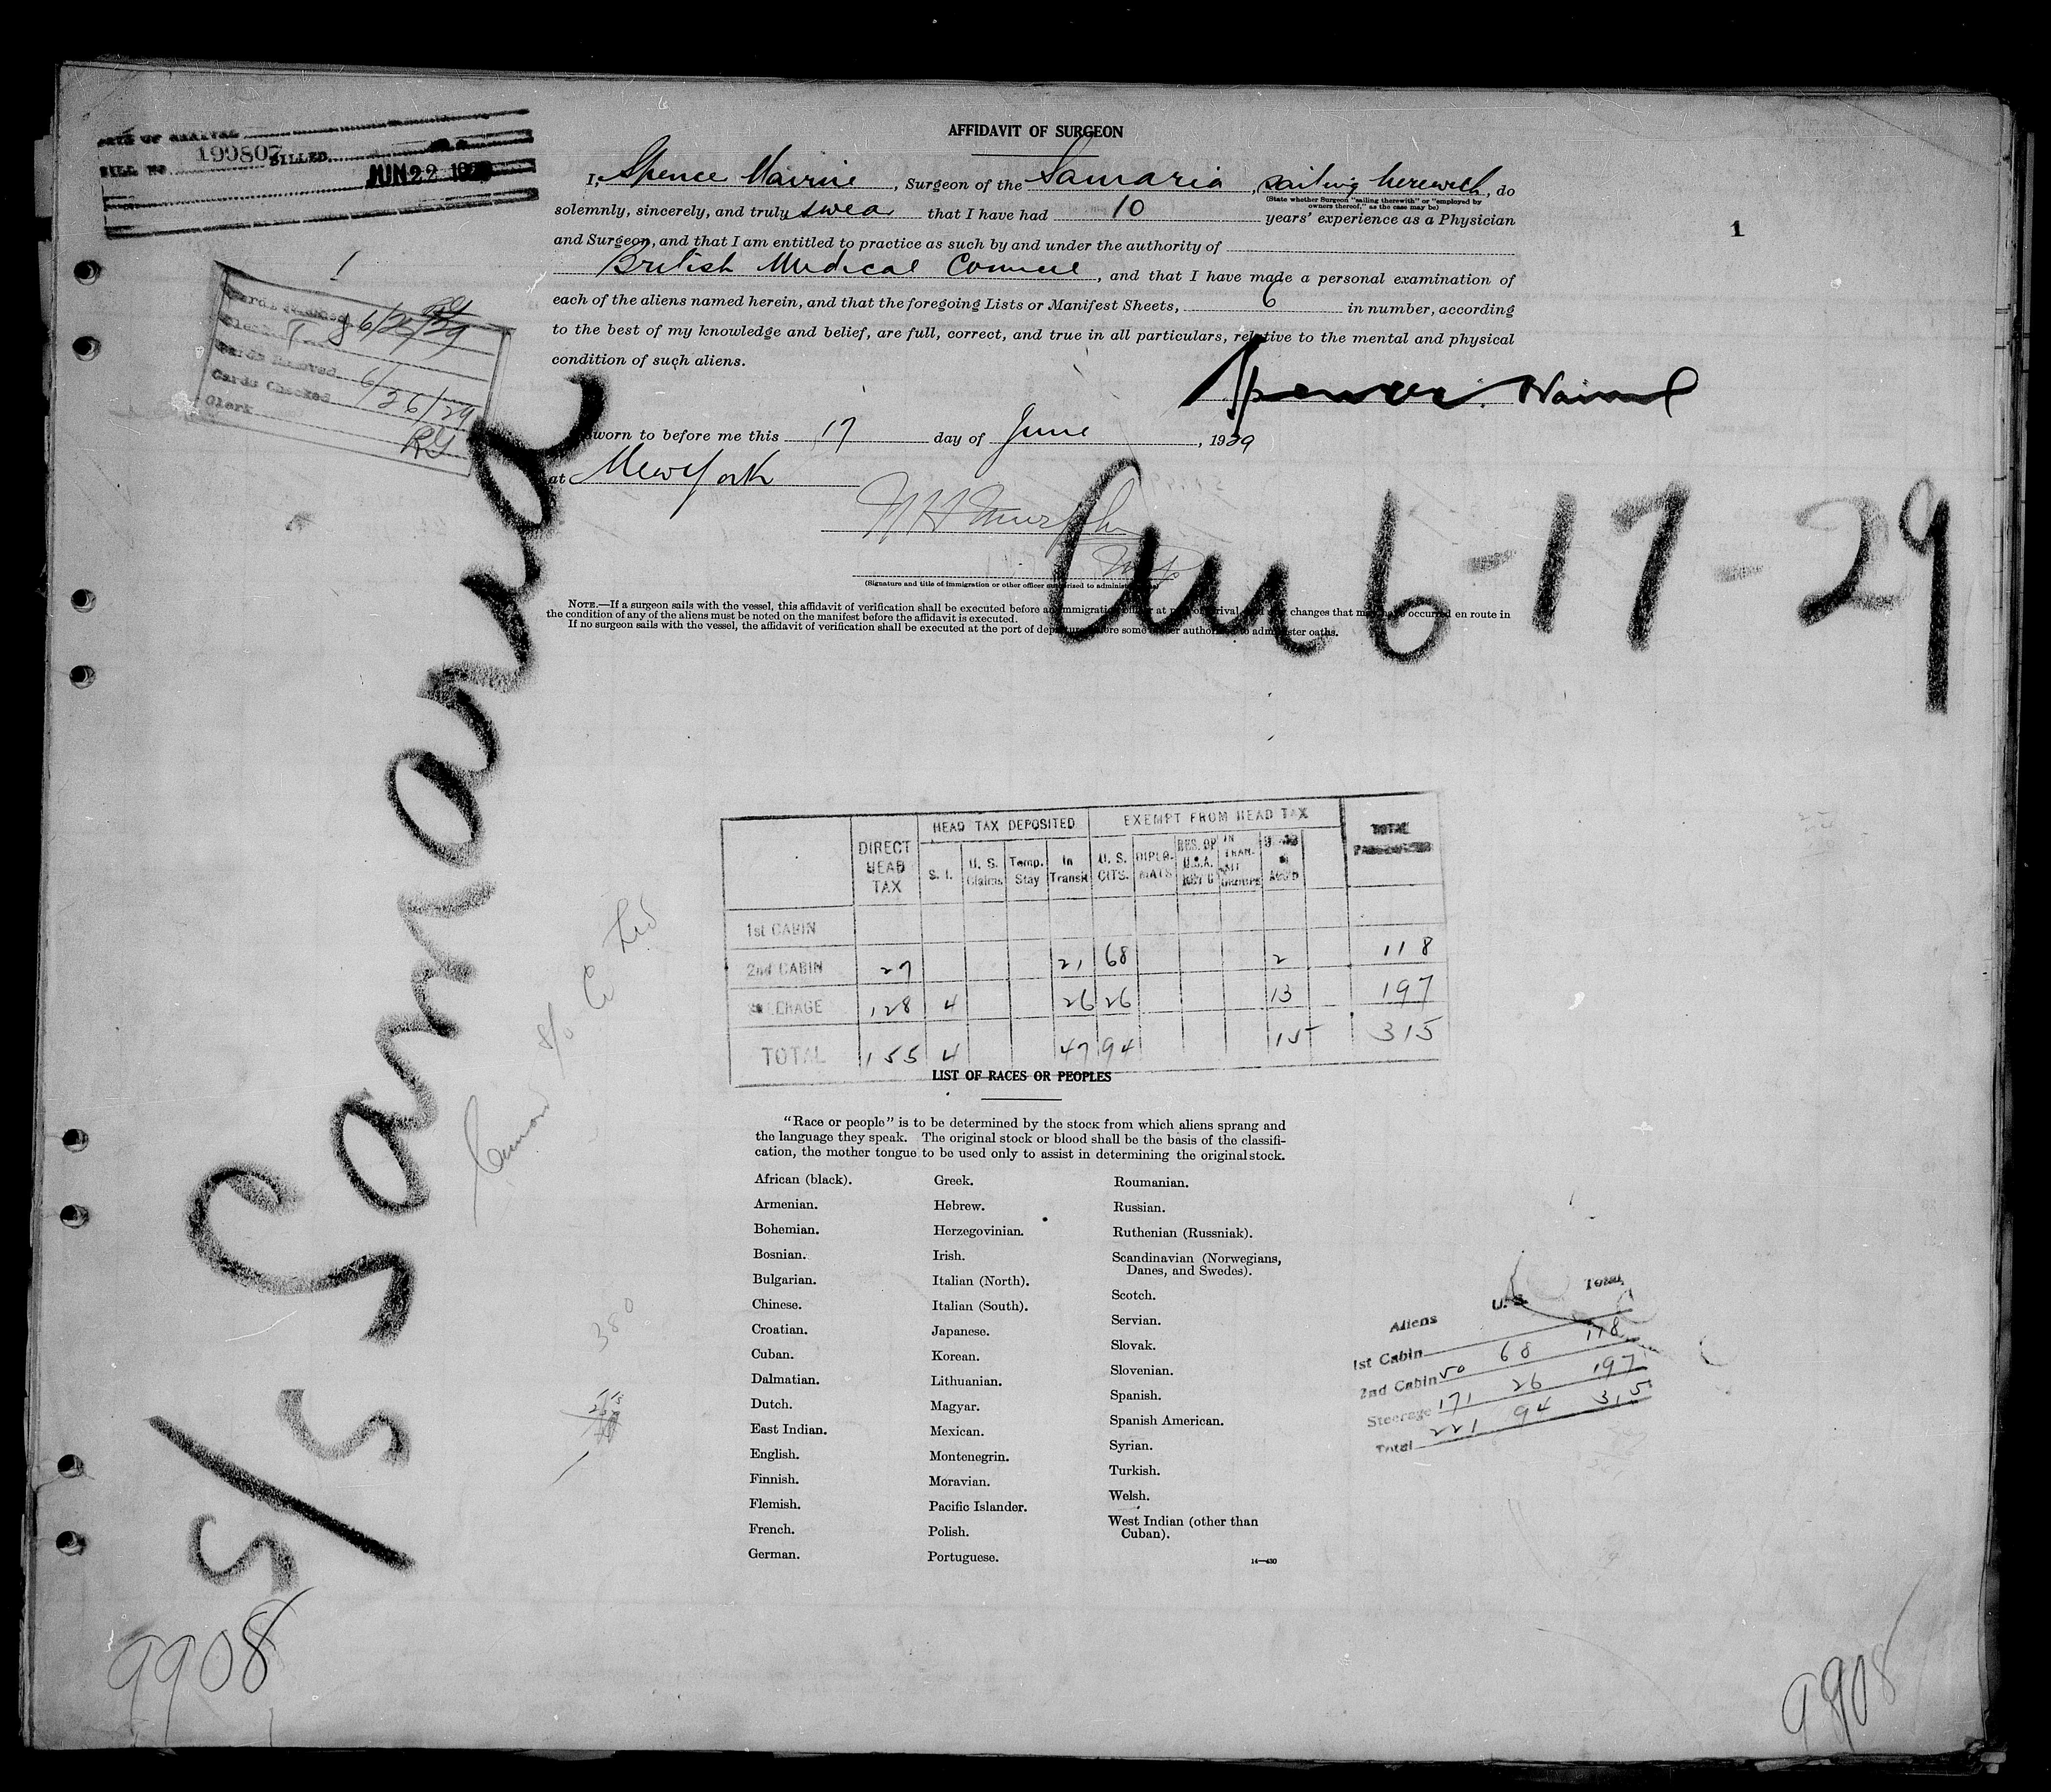 DATE OF ARRIVAL
BILL NO 199807 BILLED
JUN 22 1929
1
Cards Punched 6/25/29
Clerk
Cards Removed
Cards Checked 6/26/29
Clerk RG
AFFIDAVIT OF SURGEON
I, Spence , Surgeon of the Samaria , sailing herewith, do
(State whether Surgeon "sailing therewith" or "employed by
owners thereof," as the case may be)
solemnly, sincerely, and truly swea that I have had 10 years' experience as a Physician
and Surgeon, and that I am entitled to practice as such by and under the authority of
British Medical Council, and that I have made a personal examination of
each of the aliens named herein, and that the foregoing Lists or Manifest Sheets, 6 in number, according
to the best of my knowledge and belief, are full, correct, and true in all particulars, relative to the mental and physical
condition of such aliens.
Sworn to before me this 17 day of June , 1929
at New York
(Signature and title of immigration or other officer authorized to administer oaths.)
NOTE.—If a surgeon sails with the vessel, this affidavit of verification shall be executed before an immigration officer at port of arrival, and any changes that may have occurred en route in
the condition of any of the aliens must be noted on the manifest before the affidavit is executed.
If no surgeon sails with the vessel, the affidavit of verification shall be executed at the port of departure before some officer authorized to administer oaths.
1
6-17-29
S/S Samaria
DIRECT HEAD TAX | HEAD TAX DEPOSITED | EXEMPT FROM HEAD TAX | TOTAL PASSENGERS
S. I. | U. S. Claims | Temp. Stay | In Transit | U. S. CITS. | DIPLO-MATS | RES. OF U.S.A. | IN TRAN-SIT GROUPS
1st CABIN
2nd CABIN 27 21 68 2 118
STEERAGE 128 4 26 26 13 197
TOTAL 155 4 47 94 15 315
LIST OF RACES OR PEOPLES
"Race or people" is to be determined by the stock from which aliens sprang and
the language they speak. The original stock or blood shall be the basis of the classifi-
cation, the mother tongue to be used only to assist in determining the original stock.
African (black).
Armenian.
Bohemian.
Bosnian.
Bulgarian.
Chinese.
Croatian.
Cuban.
Dalmatian.
Dutch.
East Indian.
English.
Finnish.
Flemish.
French.
German.
Greek.
Hebrew.
Herzegovinian.
Irish.
Italian (North).
Italian (South).
Japanese.
Korean.
Lithuanian.
Magyar.
Mexican.
Montenegrin.
Moravian.
Pacific Islander.
Polish.
Portuguese.
Roumanian.
Russian.
Ruthenian (Russniak).
Scandinavian (Norwegians,
Danes, and Swedes).
Scotch.
Servian.
Slovak.
Slovenian.
Spanish.
Spanish American.
Syrian.
Turkish.
Welsh.
West Indian (other than
Cuban).
14—430
Aliens U. S. Total
1st Cabin
2nd Cabin 50 68 118
Steerage 171 26 197
Total 221 94 315
380
9908
9908